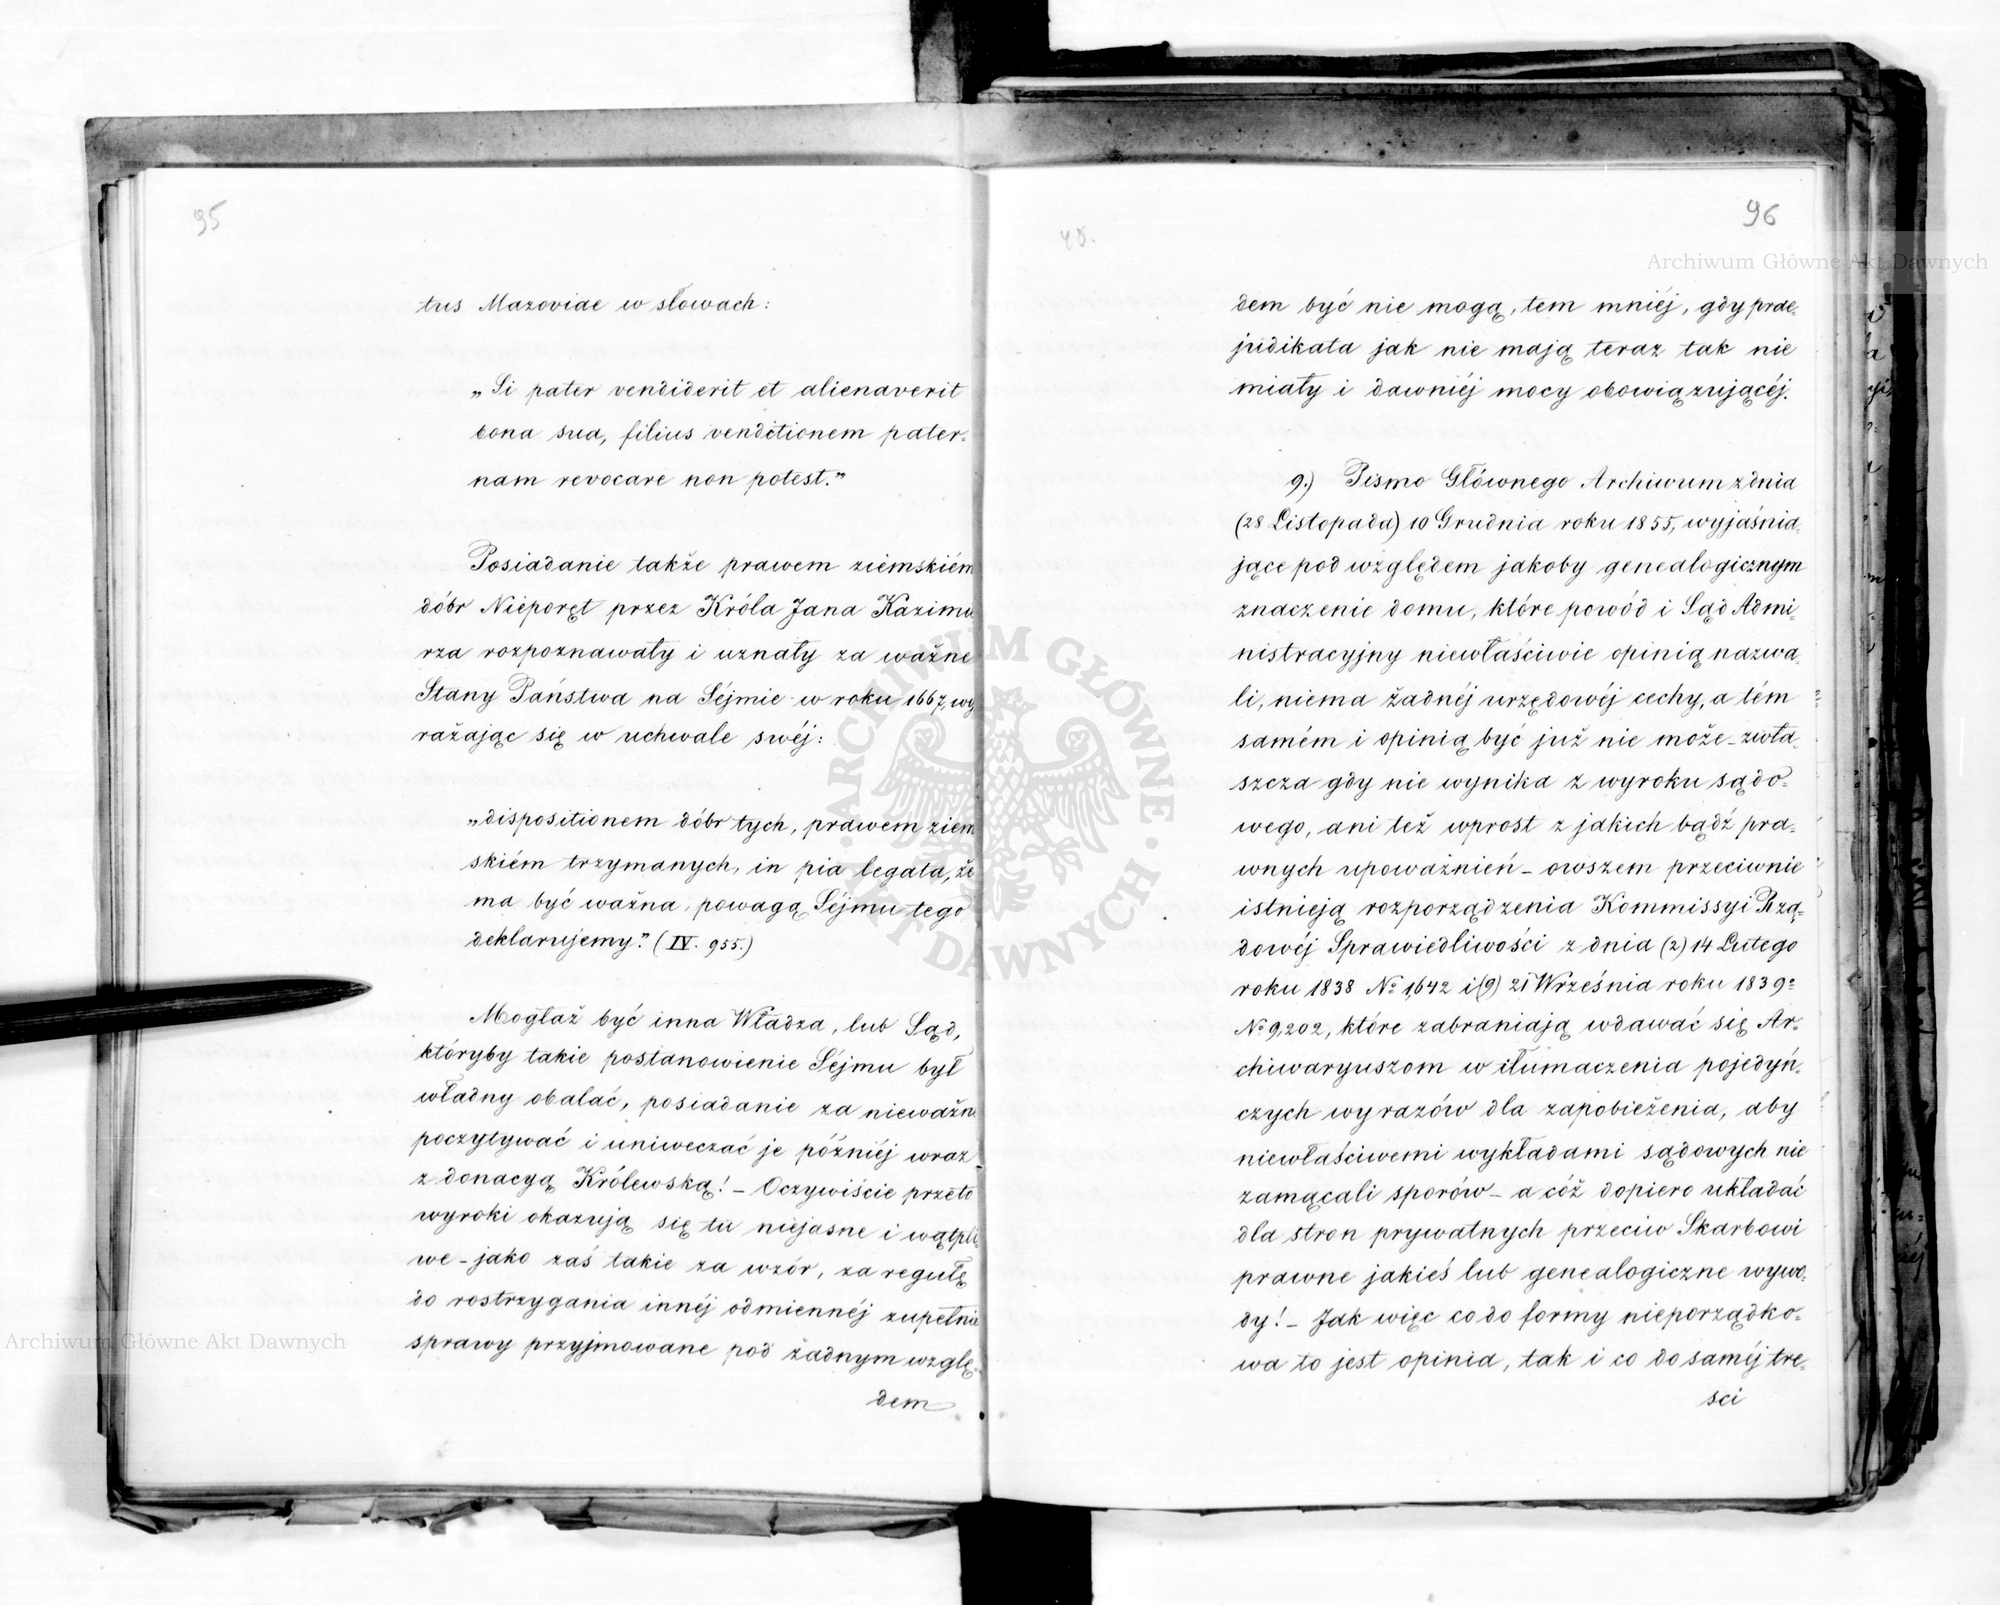 95
tus Mazoviae w słowach:
„Si pater vendiderit et alienaverit
bona sua, filius venditionem pater-
nam revocare non potest."
Posiadanie także prawem ziemskiém
dóbr Nieporęt przez Króla Jana Kazimie
rza rozpoznawały i uznały za ważne
Stany Państwa na Séjmie w roku 1667, wy
rażając się w uchwale swéj:
„dispositionem dóbr tych, prawem ziem
skiém trzymanych, in pia legata, że
ma być ważna, powagą Séjmu tego
deklarujemy." (IV. 955.)
Mogłaż być inna Władza, lub Sąd,
któryby takie postanowienie Séjmu był
władny obalać, posiadanie za nieważne
poczytywać i uniweczać je później wraz
z donacyą Królewską! – Oczywiście przeto
wyroki okazują się tu niejasne i wątpli-
we – jako zaś takie za wzór, za regułę
do rostrzygania innéj odmiennéj zupełnie
sprawy przyjmowane pod żadnym wzglę-
dem
48.
96
dem być nie mogą, tem mniéj, gdy prae-
judikata jak nie mają teraz tak nie
miały i dawniéj mocy obowiązującéj.
9.) Pismo Głównego Archiwum z dnia
(28 Listopada) 10 Grudnia roku 1855, wyjaśnia-
jące pod względem jakoby genealogicznym
znaczenie domu, które powód i Sąd Admi-
nistracyjny niewłaściwie opinią nazwa-
li, niema żadnéj urzędowéj cechy, a tém
samém i opinią być już nie może – zwła-
szcza gdy nie wynika z wyroku sądo-
wego, ani też wprost z jakich bądź pra-
wnych upoważnień – owszem przeciwnie
istnieją rozporządzenia Kommissyi Rzą-
dowéj Sprawiedliwości z dnia (2) 14 Lutego
roku 1838 No 1,642 i (9) 21 Września roku 1839o
No 9,202, które zabraniają wdawać się Ar-
chiwaryuszom w tłumaczenia pojedyń-
czych wyrazów dla zapobieżenia, aby
niewłaściwemi wykładami sądowych nie
zamącali sporów – a cóż dopiero układać
dla stron prywatnych przeciw Skarbowi
prawne jakieś lub genealogiczne wywo-
dy! – Jak więc co do formy nieporządko-
wa to jest opinia, tak i co do saméj tre-
sci
ARCHIWUM GŁÓWNE AKT DAWNYCH
Archiwum Główne Akt Dawnych
Archiwum Główne Akt Dawnych